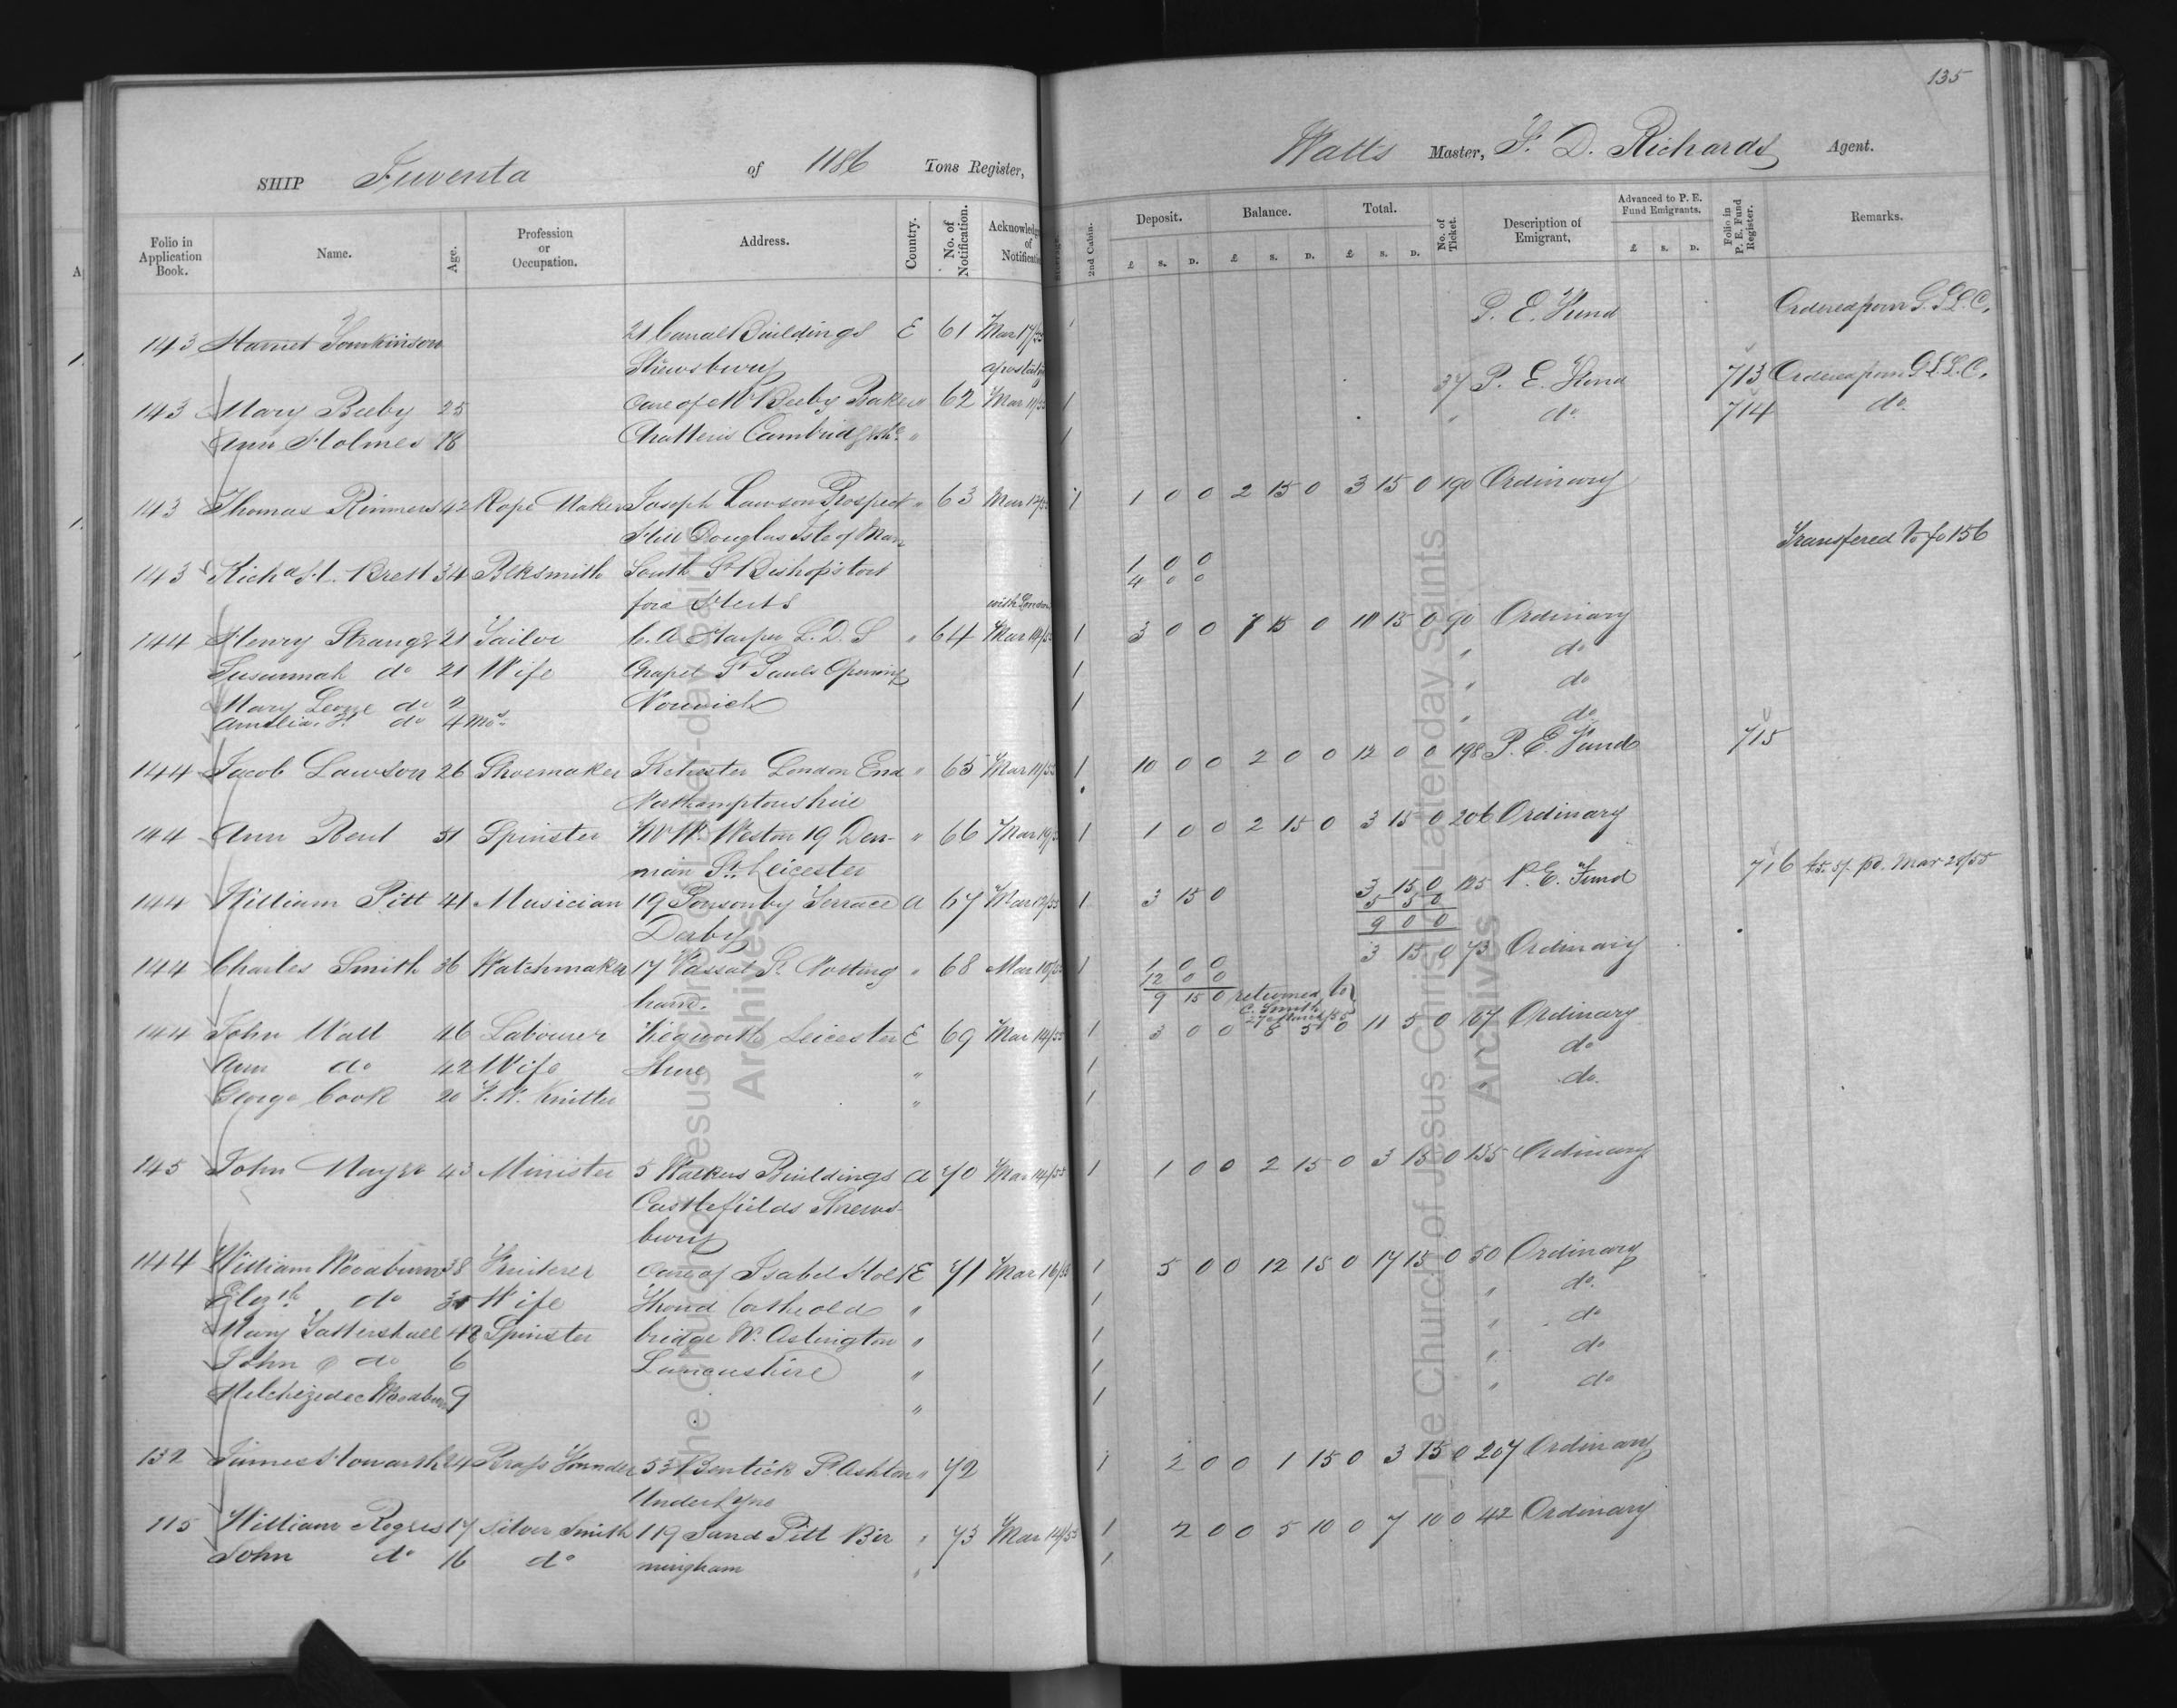 135
SHIP Juventa of 1186 Tons Register, Watts Master, F. D. Richards Agent.
Folio in Application Book. Name. Age. Profession or Occupation. Address. Country. No. of Notification. Acknowledg of Notificatio 2nd Cabin. Deposit. £ S. D. Balance. £ S. D. Total. £ S. D. No. of Ticket. Description of Emigrant. Advanced to P. E. Fund Emigrants. £ S. D. Folio in P. E. Fund Register. Remarks.
143 Harriet Tomkinson 21 Canal Buildings E 61 Mar 17/55 1 P. E. Fund Ordered from G. S. L. C.
Shrewsbury
143 Mary Beeby 25 Care of Mr Beeby Baker " 62 Mar 1 37 P. E. Fund 713 Ordered from G. S. L. C.
Ann Holmes 18 Chatteris Cambridgshe " 1 " do 714 do
143 Thomas Rimmers 42 Rope Maker Joseph Lawson Prospect " 63 Mar 1 1 0 0 2 15 0 3 15 0 190 Ordinary
Hill Douglas Isle of Man
143 Richd H. Brett 34 Blksmith South St Bishop's tort 1 0 0 Transfered to fo 156
ford Herts 4 0 0
with London
144 Henry Strange 21 Tailor C. A. Harper L. D. S " 64 Mar 1 3 0 0 7 15 0 90 Ordinary
Susannah do 21 Wife Chapel St Pauls Opening 1 " do
Mary do 2 Norwich 1 " do
Amelia H. do 4 Mos " do
144 Jacob Lawson 26 Shoemaker London End " 65 Mar 1 10 0 0 2 0 0 12 0 0 198 P. E. Fund 715
Northamptonshire
144 Ann Bent 51 Spinster Mr W. Weston 19 Den- " 66 Mar 19/5 1 1 0 0 2 15 0 3 15 0 206 Ordinary
man St. Leicester
144 William Pitt 41 Musician 19 Ponsonby Terrace A 67 Mar 1 3 15 0 3 15 0 125 P. E. Fund 716 £5. 5/- pd. Mar 28/55
Derby 5 5 0
9 0 0
144 Charles Smith 36 Watchmaker 17 Vassal St Notting " 68 Mar 1 1 0 0 3 15 0 73 Ordinary
ham. 12 0 0
9 15 0 returned to
C. Smith
27 March/55
144 John Wall 46 Labourer Kegworth Leicester E 69 Mar 14/55 1 3 0 0 8 5 0 11 5 0 107 Ordinary
Ann do 42 Wife Shire " 1 do
George Cook 20 F. W. Knitter " 1 " do.
145 John Mayer 43 Minister 5 Walkers Buildings A 70 Mar 14/55 1 1 0 0 2 15 0 3 15 0 135 Ordinary
Castlefields Shrews-
bury
144 William Woodburn 38 Fruiterer Care of Isabel E 71 Mar 16/55 1 5 0 0 12 15 0 17 15 0 50 Ordinary
Elizth do Wife " 1 " do.
Mary Tattershall 42 Spinster bridge Nr. " 1 " do
John do 6 Lancashire " 1 " do
Melchizedec Woodburn 9 " 1 " do
132 James Howarth 24 Brass Founder 53 Bentick St Ashton " 72 1 2 0 0 1 15 0 3 15 0 207 Ordinary
Under Lyne
115 William Rogers 17 Silver Smith 119 Sand Pitt Bir " 73 Mar 14/55 1 2 0 0 5 10 0 7 10 0 42 Ordinary
John do 16 do mingham " 1
The Church of Jesus Christ of Latter-day Saints
Archives
The Church of Jesus Christ of Latter-day Saints
Archives